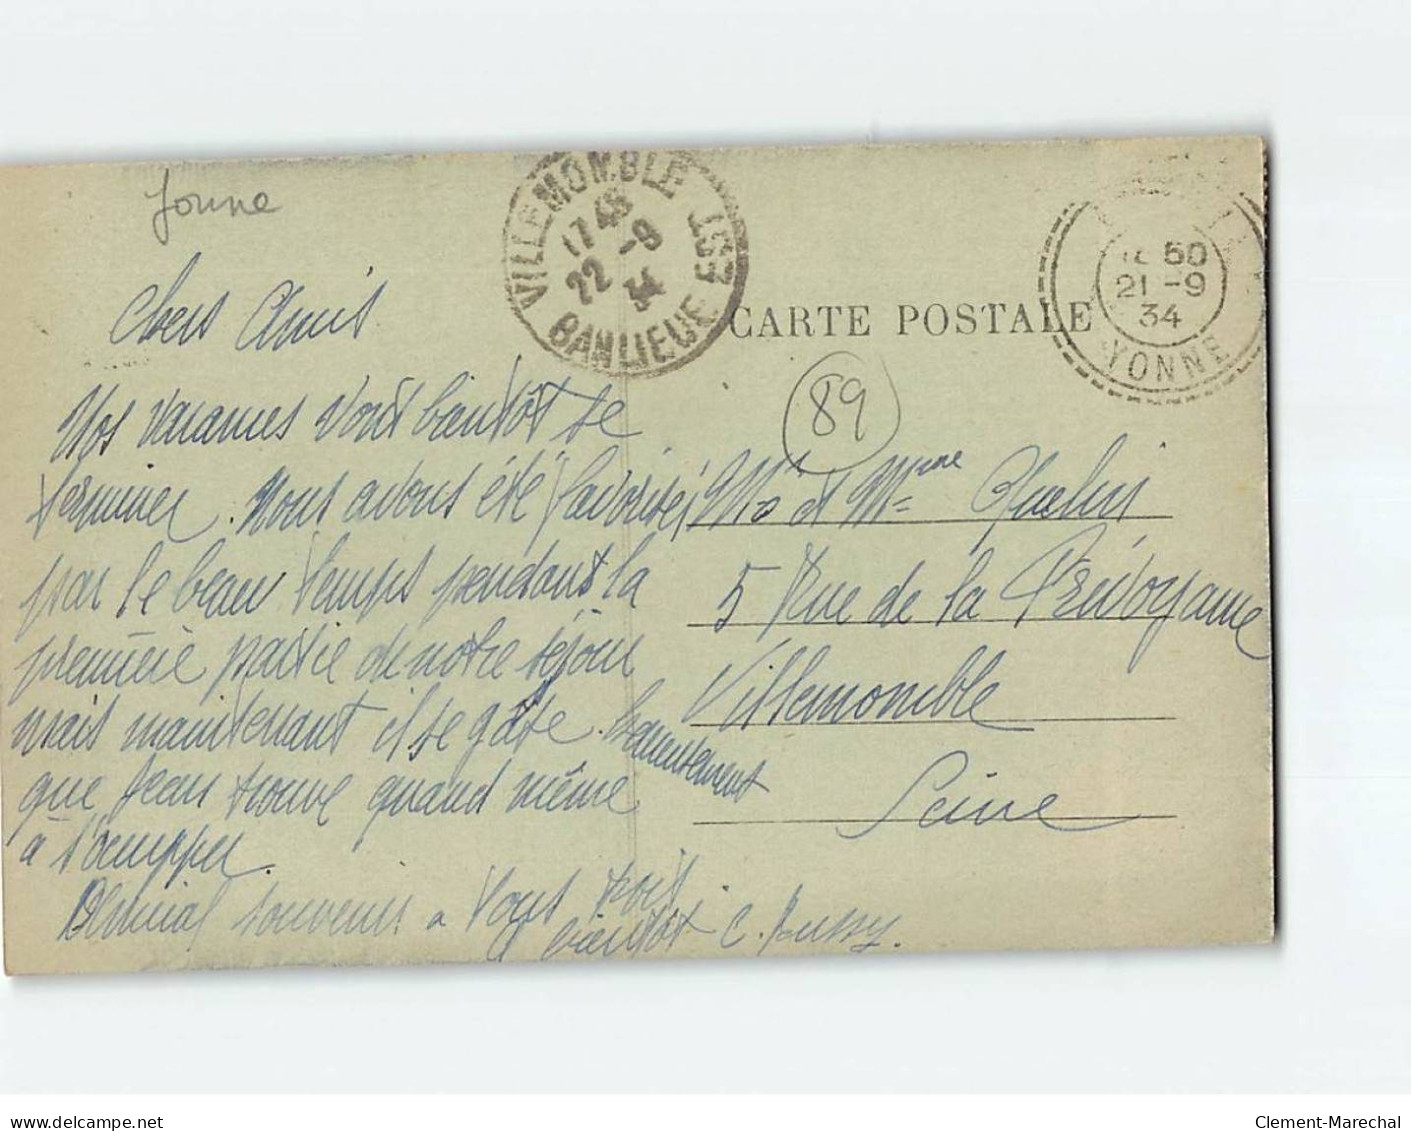 Yonne
VILLEMOMBLE
17 45
22 -9
34
BANLIEUE EST
CARTE POSTALE
50
21 -9
34
YONNE
89
Chers Amis
Nos vacances vont bientôt se
terminer. Nous avons été favorisés
par le beau temps pendant la
première partie de notre séjour
mais maintenant il se gâte. heureusement
que Jean trouve quand même
à s'occuper.
Amical souvenir à vous trois
à bientôt C. Bussy.
Mr et Mme
5 Rue de la Prévoyance
Villemomble
Seine
delcampe.net
Clement-Marechal